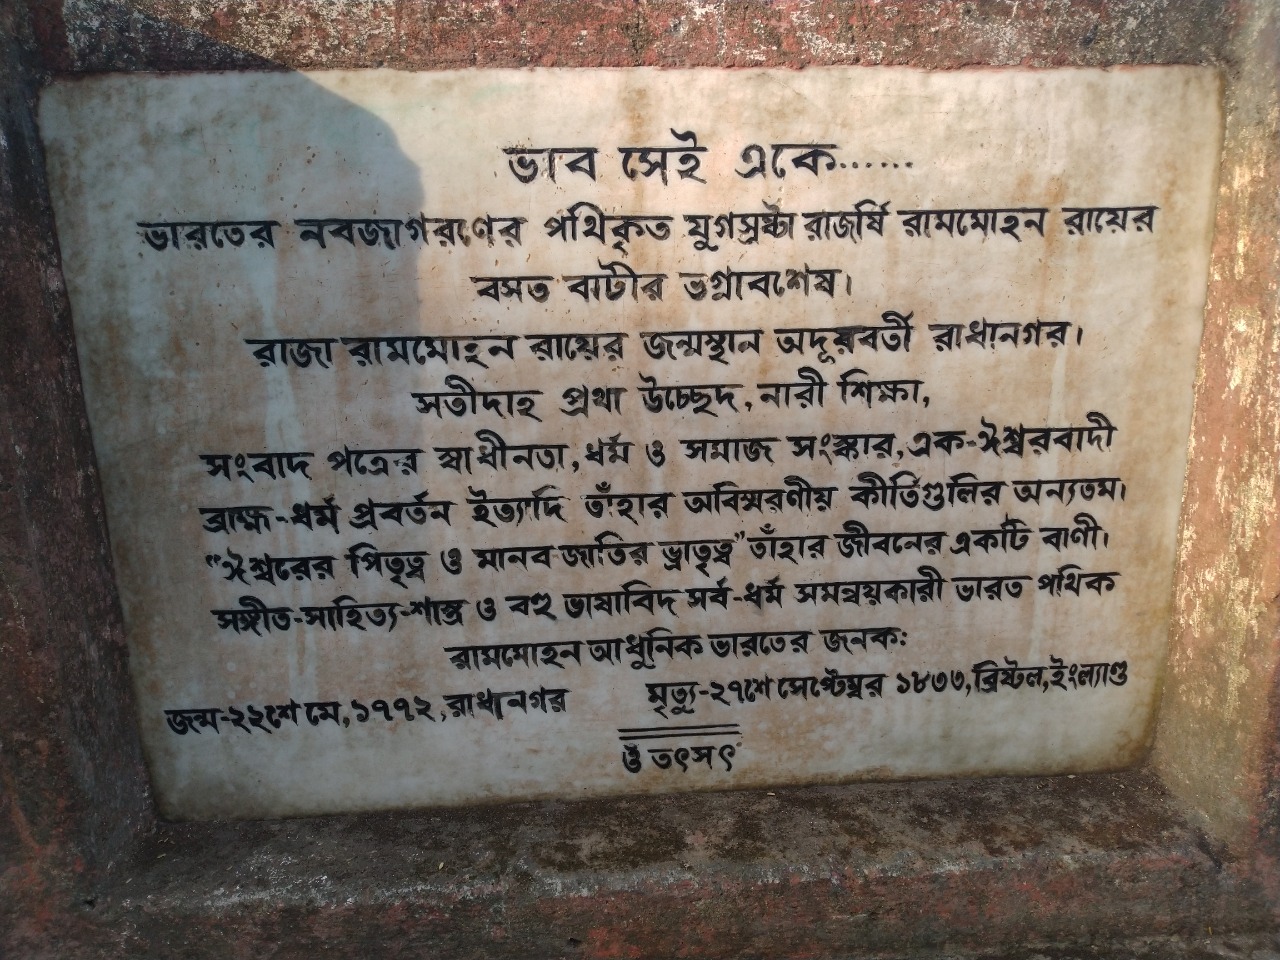 ভাব সেই একে......
ভারতের নবজাগরণের পথিকৃত যুগস্রষ্টা রাজর্ষি রামমোহন রায়ের
বসত বাটীর ভগ্নাবশেষ।
রাজা রামমোহন রায়ের জন্মস্থান অদূরবর্তী রাধানগর।
সতীদাহ প্রথা উচ্ছেদ, নারী শিক্ষা,
সংবাদ পত্রের স্বাধীনতা, ধর্ম ও সমাজ সংস্কার, এক-ঈশ্বরবাদী
ব্রাহ্ম-ধর্ম প্রবর্তন ইত্যাদি তাঁহার অবিস্মরণীয় কীর্তিগুলির অন্যতম।
"ঈশ্বরের পিতৃত্ব ও মানব জাতির ভ্রাতৃত্ব" তাঁহার জীবনের একটি বাণী।
সঙ্গীত-সাহিত্য-শাস্ত্র ও বহু ভাষাবিদ সর্ব-ধর্ম সমন্বয়কারী ভারত পথিক
রামমোহন আধুনিক ভারতের জনক:
জন্ম-২২শে মে, ১৭৭২, রাধানগর মৃত্যু-২৭শে সেপ্টেম্বর ১৮৩৩, ব্রিষ্টল, ইংল্যাণ্ড
ওঁ তৎসৎ